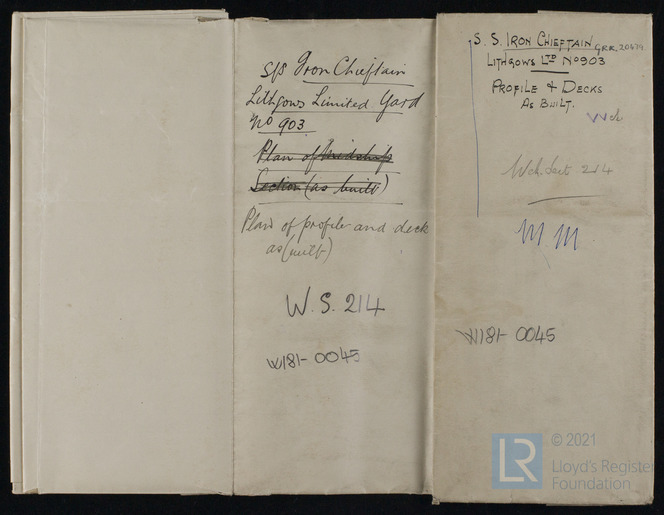 S/S Iron Chieftain
Lithgows Limited Yard
No 903
Plan of Midship
Section (as built)
Plan of profile and deck
as (built)
W.S. 214
W181-0045
S.S. IRON CHIEFTAIN GRK. 20479
LITHGOWS LTD No 903
PROFILE & DECKS
AS BUILT.
Wch
Wch. 214
M M
W181-0045
LR
© 2021
Lloyd's Register
Foundation